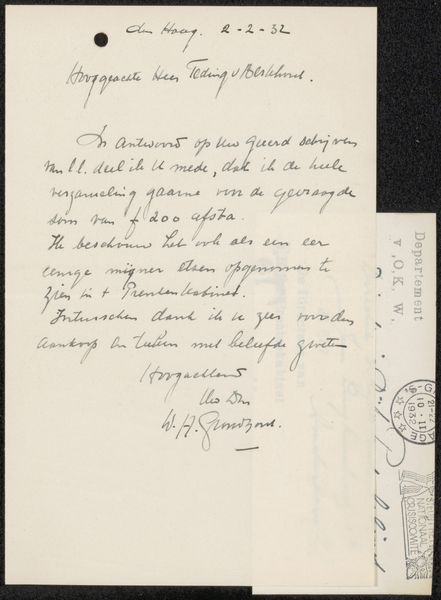 den Haag. 2-2-32
Hooggeachte Heer Teding v Berkhout.
In antwoord op Uw geeerd schrijven
van l.l. deel ik U mede, dat ik de heele
verzameling gaarne voor de gevraagde
som van f 200 afsta.
Ik beschouw het ook als een eer
eenige mijner etsen opgenomen te
zien in 't Prentenkabinet.
Intusschen dank ik U zeer voor den
aankoop en teeken met beleefde groeten
Hoogachtend
Uw Dw
W. A.
Departement
v. O.K.W.
10.II
1932
NATIONAAL
CRISISCOMITÉ